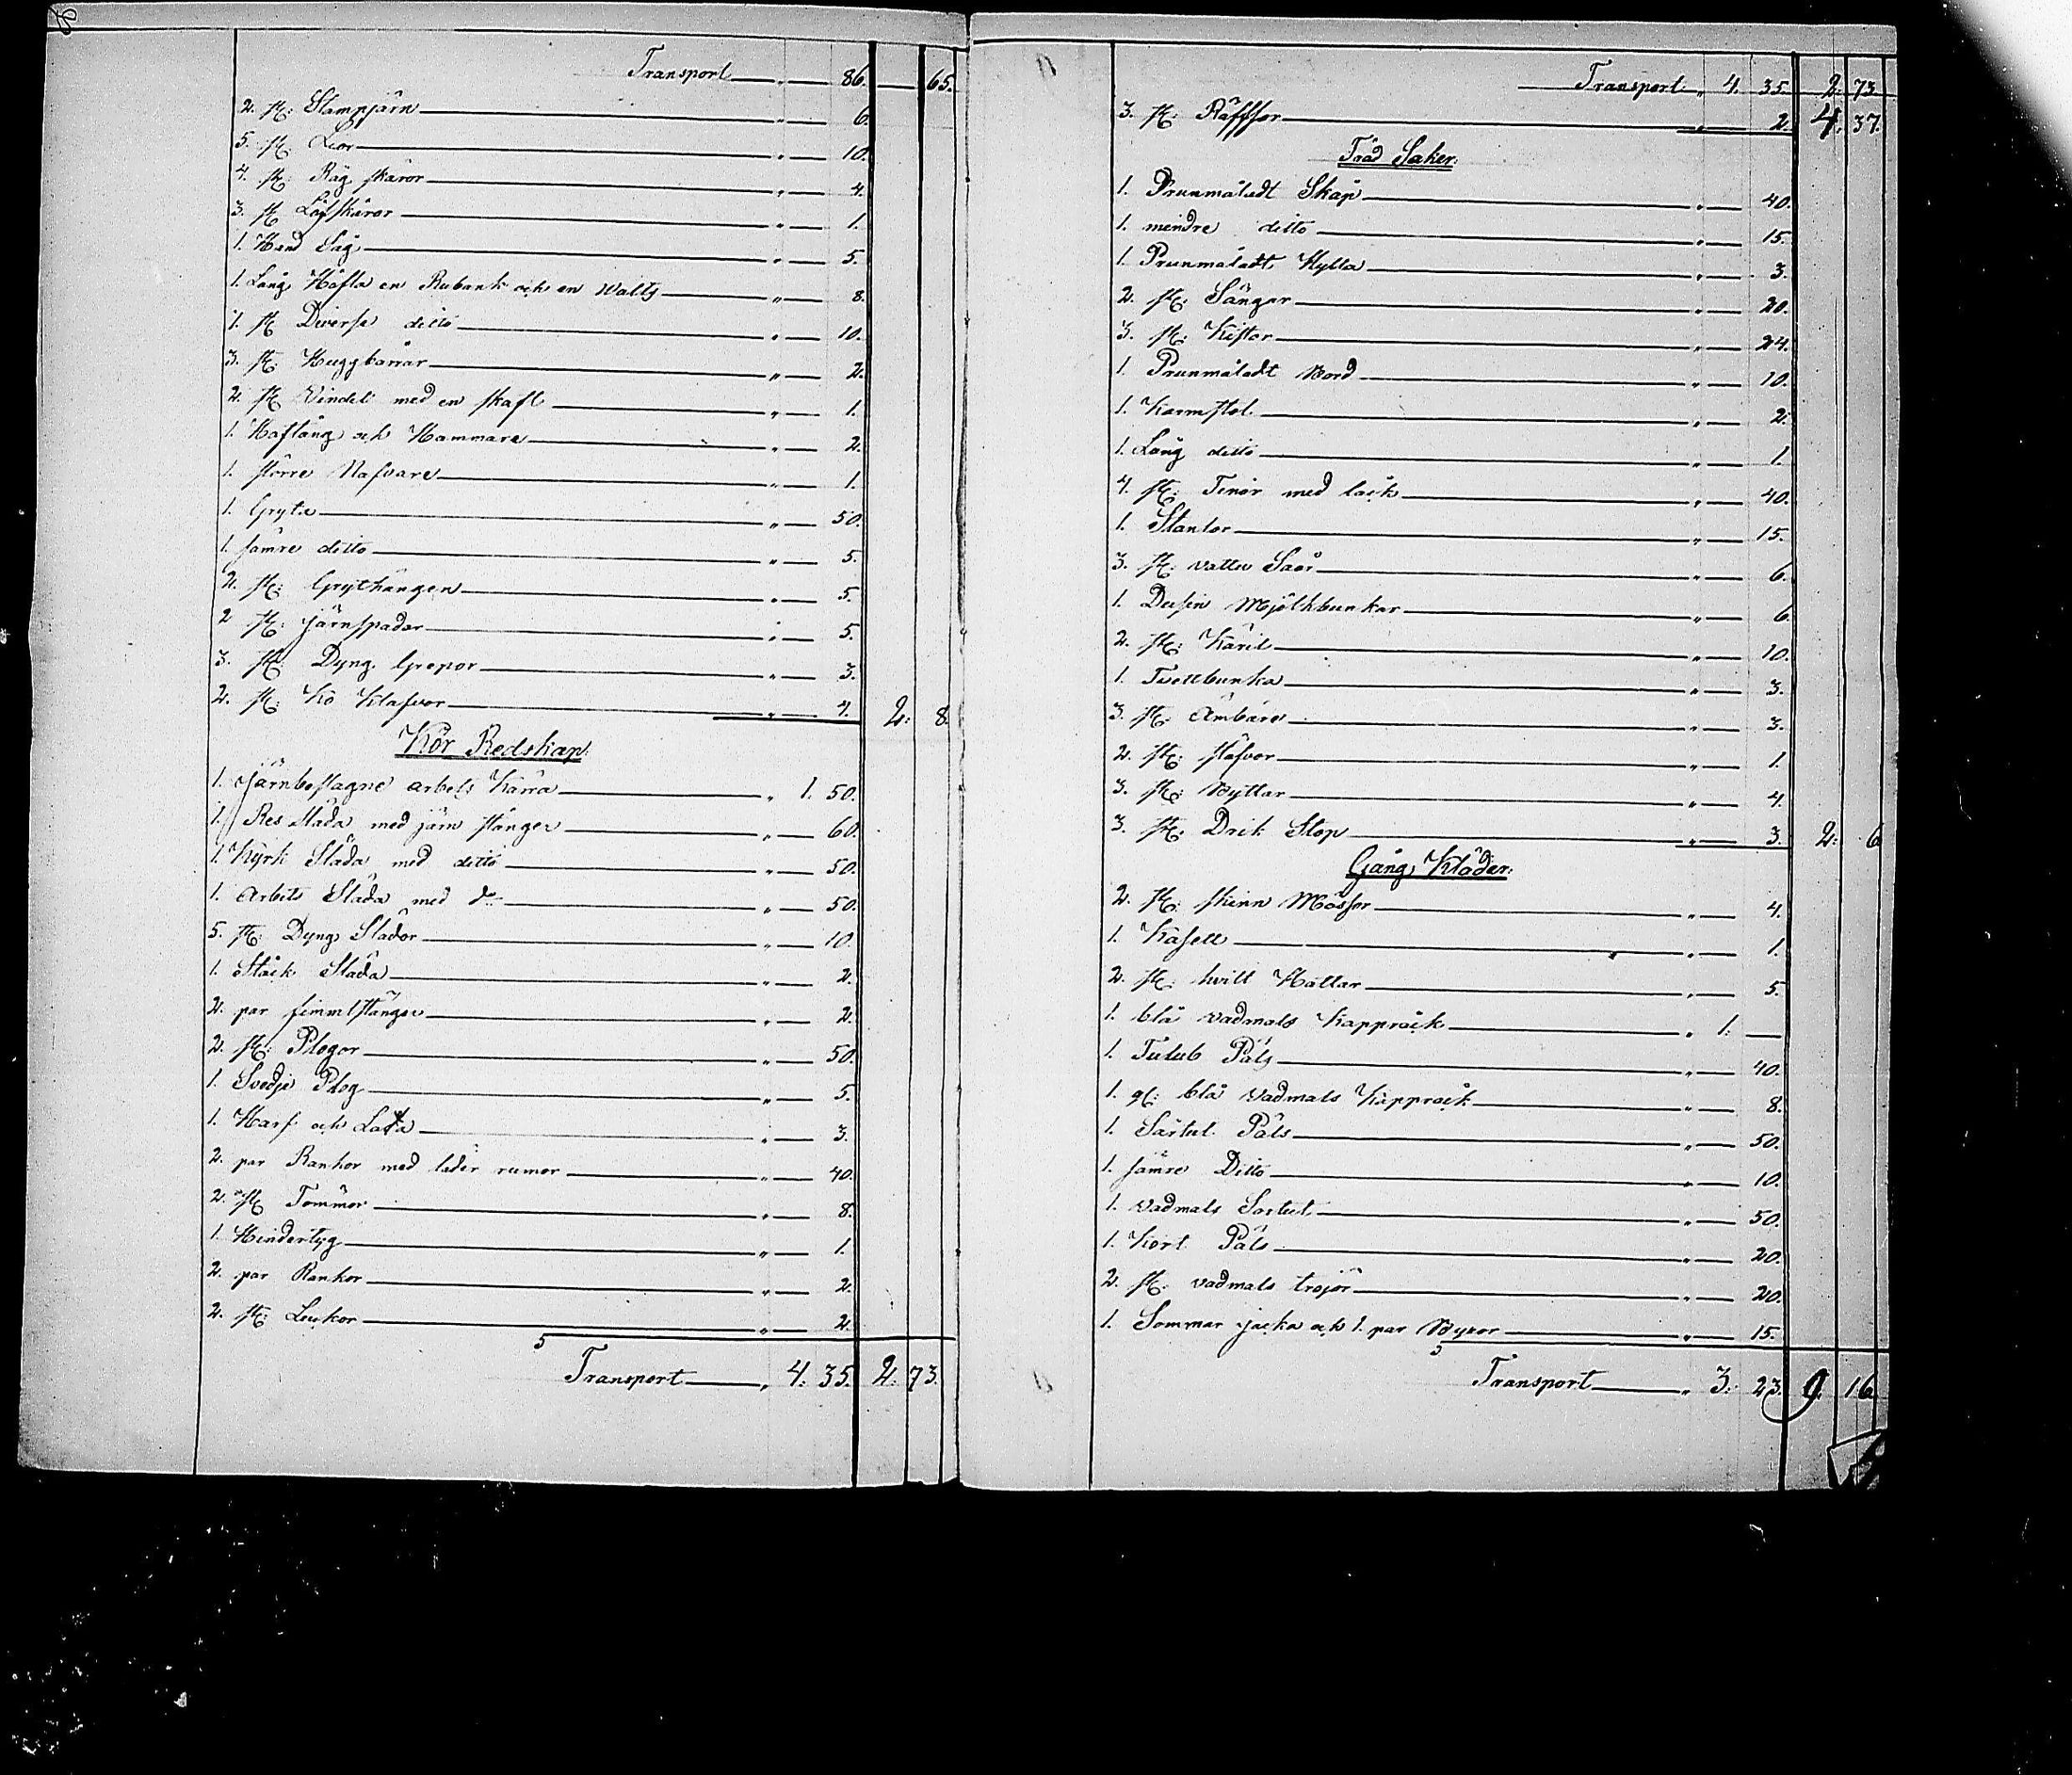 Transport — " — 86. — 65.
2. st: Stampjärn — " — 6.
5. st. Lior — " — 10.
4. st: Råg skäror — " — 4.
3. st Löfskäror — " — 1.
1. Hand Såg — " — 5.
1. Lång Höfla en Rubank och en Walts — " — 8.
1. st Diverse ditto — " — 10.
3. st: Huggbärrar — " — 2.
2. st Vindel med en skaft — " — 1.
1. Hoftång och Hammare — " — 2.
1. större Nafvare — " — 1.
1. Gryta — " — 50.
1. sämre ditto — " — 5.
2. st: Grythängen — " — 5.
2 st: järnspadar — " — 5.
3. st: Dyng. Grepor — " — 3.
2. st: Ko Klafvor — " — 4. 2: 8.
Kör Redskap:
1. Järnbeslagne arbets Kärra — " 1. 50.
1. Res Släda med järn stänger — " — 60.
1. Kyrk Släda med ditto — " — 50.
1. Arbets Släda med d:o — " — 50.
5. st: Dyng Slädor — " — 10.
1. Stäck Släda — " — 2.
2. par fimmelstänger — " — 2.
2. st: Plogor — " — 50.
1. Svedje Plog — " — 5.
1. Harf och Lata — " — 3.
2. par Rankor med läder remor — " — 40.
2. st Tömmor — " — 8.
1. Hindertyg — " — 1.
2. par Rankor — " — 2.
2. st: Lackor — " — 2.
Transport — " 4. 35. 2: 73.
Transport: " 4. 35. 2: 73
3. st: Räfsor — " — 2. 4. 37.
Träd Saker:
1. Brunmåladt Skåp — " — 40.
1. mindre ditto — " — 15.
1. Brunmåladt Hylla — " — 3.
2. st: Sängar — " — 20.
3. st: Kistor — " — 24.
1. Brunmåladt Bord — " — 10.
1. Karmstol — " — 2.
1. Lång ditto — " — 1.
4. st: Tinor med lack — " — 40.
1. Stantor — " — 15.
3. st: vattu Såar — " — 6.
1. Dusin Mjölkbunkar — " — 6.
2. st: Käril — " — 10.
1. Tvettbunka — " — 3.
3. st: Ämbare — " — 3.
2. st: stäfvor — " — 1.
3. st: Byttar — " — 4.
3. st: Drik Stop — " — 3. 2: 6
Gång Kläder:
2. st: skinn Mössor — " — 4.
1. Kasett — " — 1.
2. st: hvitt Hattar — " — 5.
1. blå vadmals Kapprock — " 1: —
1. Tulub Päls — " — 40.
1. gl: blå vadmals Kapprock — " — 8.
1. Sartut Päls — " — 50.
1. sämre Ditto — " — 10.
1. vadmals Sartut — " — 50.
1. Kort Päls — " — 20.
2. st: vadmals tröjor — " — 20.
1. Sommar jacka och 1. par Byxor — " — 15.
Transport — " 3: 23. 9. 16